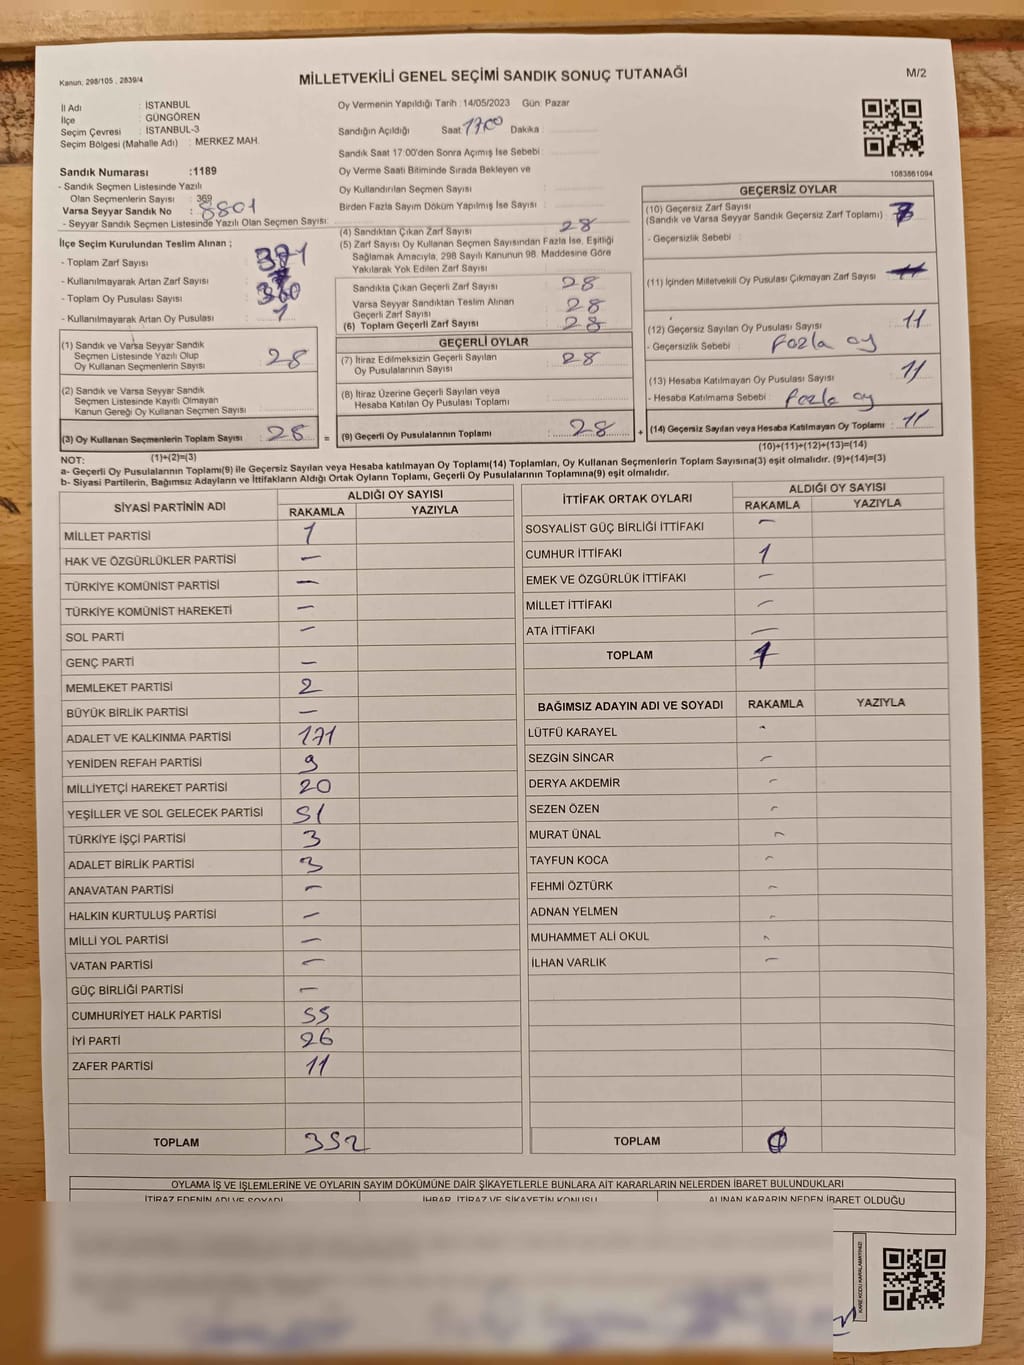 Kanun: 298/105 , 2839/4
MİLLETVEKİLİ GENEL SEÇİMİ SANDIK SONUÇ TUTANAĞI
M/2
İl Adı : İSTANBUL
İlçe : GÜNGÖREN
Seçim Çevresi : İSTANBUL-3
Seçim Bölgesi (Mahalle Adı) : MERKEZ MAH.
Oy Vermenin Yapıldığı Tarih : 14/05/2023 Gün: Pazar
Sandığın Açıldığı Saat 17:00 Dakika :
Sandık Saat 17:00'den Sonra Açımış İse Sebebi :
Oy Verme Saati Bitiminde Sırada Bekleyen ve
Oy Kullandırılan Seçmen Sayısı :
Birden Fazla Sayım Döküm Yapılmış İse Sayısı :
Sandık Numarası :1189
- Sandık Seçmen Listesinde Yazılı
Olan Seçmenlerin Sayısı : 369
Varsa Seyyar Sandık No : 8801
- Seyyar Sandık Seçmen Listesinde Yazılı Olan Seçmen Sayısı:
İlçe Seçim Kurulundan Teslim Alınan ;
- Toplam Zarf Sayısı : 371
- Kullanılmayarak Artan Zarf Sayısı :
- Toplam Oy Pusulası Sayısı : 360
- Kullanılmayarak Artan Oy Pusulası : 1
(1) Sandık ve Varsa Seyyar Sandık
Seçmen Listesinde Yazılı Olup
Oy Kullanan Seçmenlerin Sayısı : 28
(2) Sandık ve Varsa Seyyar Sandık
Seçmen Listesinde Kayıtlı Olmayan
Kanun Gereği Oy Kullanan Seçmen Sayısı :
(3) Oy Kullanan Seçmenlerin Toplam Sayısı : 28
(1)+(2)=(3)
(4) Sandıktan Çıkan Zarf Sayısı : 28
(5) Zarf Sayısı Oy Kullanan Seçmen Sayısından Fazla İse, Eşitliği
Sağlamak Amacıyla, 298 Sayılı Kanunun 98. Maddesine Göre
Yakılarak Yok Edilen Zarf Sayısı :
Sandıkta Çıkan Geçerli Zarf Sayısı : 28
Varsa Seyyar Sandıktan Teslim Alınan
Geçerli Zarf Sayısı : 28
(6) Toplam Geçerli Zarf Sayısı : 28
GEÇERLİ OYLAR
(7) İtiraz Edilmeksizin Geçerli Sayılan
Oy Pusulalarının Sayısı : 28
(8) İtiraz Üzerine Geçerli Sayılan veya
Hesaba Katılan Oy Pusulası Toplamı :
= (9) Geçerli Oy Pusulalarının Toplamı : 28 +
1083861094
GEÇERSİZ OYLAR
(10) Geçersiz Zarf Sayısı
(Sandık ve Varsa Seyyar Sandık Geçersiz Zarf Toplamı) :
- Geçersizlik Sebebi :
(11) İçinden Milletvekili Oy Pusulası Çıkmayan Zarf Sayısı :
(12) Geçersiz Sayılan Oy Pusulası Sayısı : 11
- Geçersizlik Sebebi : Fazla oy
(13) Hesaba Katılmayan Oy Pusulası Sayısı : 11
- Hesaba Katılmama Sebebi : Fazla oy
(14) Geçersiz Sayılan veya Hesaba Katılmayan Oy Toplamı : 11
(10)+(11)+(12)+(13)=(14)
NOT:
a- Geçerli Oy Pusulalarının Toplamı(9) ile Geçersiz Sayılan veya Hesaba katılmayan Oy Toplamı(14) Toplamları, Oy Kullanan Seçmenlerin Toplam Sayısına(3) eşit olmalıdır. (9)+(14)=(3)
b- Siyasi Partilerin, Bağımsız Adayların ve İttifakların Aldığı Ortak Oyların Toplamı, Geçerli Oy Pusulalarının Toplamına(9) eşit olmalıdır.
SİYASİ PARTİNİN ADI ALDIĞI OY SAYISI
RAKAMLA YAZIYLA
MİLLET PARTİSİ 1
HAK VE ÖZGÜRLÜKLER PARTİSİ –
TÜRKİYE KOMÜNİST PARTİSİ –
TÜRKİYE KOMÜNİST HAREKETİ –
SOL PARTİ –
GENÇ PARTİ –
MEMLEKET PARTİSİ 2
BÜYÜK BİRLİK PARTİSİ –
ADALET VE KALKINMA PARTİSİ 171
YENİDEN REFAH PARTİSİ 9
MİLLİYETÇİ HAREKET PARTİSİ 20
YEŞİLLER VE SOL GELECEK PARTİSİ 51
TÜRKİYE İŞÇİ PARTİSİ 3
ADALET BİRLİK PARTİSİ 3
ANAVATAN PARTİSİ –
HALKIN KURTULUŞ PARTİSİ –
MİLLİ YOL PARTİSİ –
VATAN PARTİSİ –
GÜÇ BİRLİĞİ PARTİSİ –
CUMHURİYET HALK PARTİSİ 55
İYİ PARTİ 26
ZAFER PARTİSİ 11
TOPLAM 352
İTTİFAK ORTAK OYLARI ALDIĞI OY SAYISI
RAKAMLA YAZIYLA
SOSYALİST GÜÇ BİRLİĞİ İTTİFAKI –
CUMHUR İTTİFAKI 1
EMEK VE ÖZGÜRLÜK İTTİFAKI –
MİLLET İTTİFAKI –
ATA İTTİFAKI –
TOPLAM 1
BAĞIMSIZ ADAYIN ADI VE SOYADI RAKAMLA YAZIYLA
LÜTFÜ KARAYEL -
SEZGİN SİNCAR –
DERYA AKDEMİR -
SEZEN ÖZEN -
MURAT ÜNAL -
TAYFUN KOCA -
FEHMİ ÖZTÜRK -
ADNAN YELMEN -
MUHAMMET ALİ OKUL -
İLHAN VARLIK –
TOPLAM 0
OYLAMA İŞ VE İŞLEMLERİNE VE OYLARIN SAYIM DÖKÜMÜNE DAİR ŞİKAYETLERLE BUNLARA AİT KARARLARIN NELERDEN İBARET BULUNDUKLARI
İTİRAZ EDENİN ADI VE SOYADI İHBAR, İTİRAZ VE ŞİKAYETİN KONUSU ALINAN KARARIN NEDEN İBARET OLDUĞU
KARE KODU KARALAMAYINIZ!